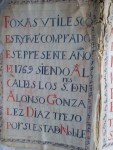 FOXAS VTILES Q
ESTRYFVE COMPRADO
ESTE PRESENTE AÑO
D 1769 SIENDO AL
CALDES LOS S. DN
ALONSO GONZA
LEZ DIAZ TREJO
POR SI ESTADN